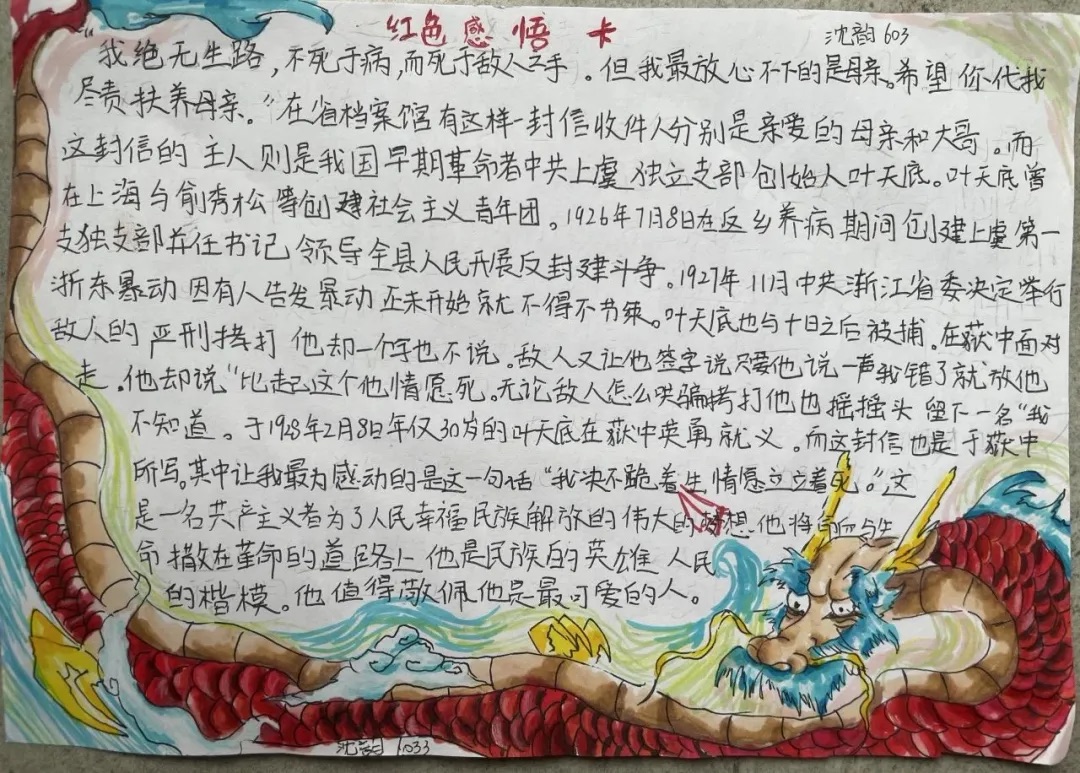 红色感悟卡
沈韵603
“我绝无生路，不死于病，而死于敌人之手。但我最放心不下的是母亲。希望你代我
尽责扶养母亲。”在省档案馆有这样一封信收件人分别是亲爱的母亲和大哥。而
这封信的主人则是我国早期革命者中共上虞独立支部创始人叶天底。叶天底曾
在上海与俞秀松等创建社会主义青年团。1926年7月8日在返乡养病期间创建上虞第一
支独支部并任书记领导全县人民开展反封建斗争。1927年11月中共浙江省委决定举行
浙东暴动因有人告发暴动还未开始就不得不节束。叶天底也与十日之后被捕。在狱中面对
敌人的严刑拷打他却一个字也不说。敌人又让他签字说只要他说一声我错了就放他
走。他却说“比起这个他情愿死。无论敌人怎么哄骗拷打他也摇摇头留下一名“我
不知道。于1928年2月8日年仅30岁的叶天底在狱中英勇就义。而这封信也是于狱中
所写。其中让我最为感动的是这一句话“我决不跪着生情愿立立着死。”这
是一名共产主义者为了人民幸福民族解放的伟大的梦想他将与生
命撒在革命的道路上他是民族的英雄人民
的楷模。他值得敬佩他是最可爱的人。
沈韵1033